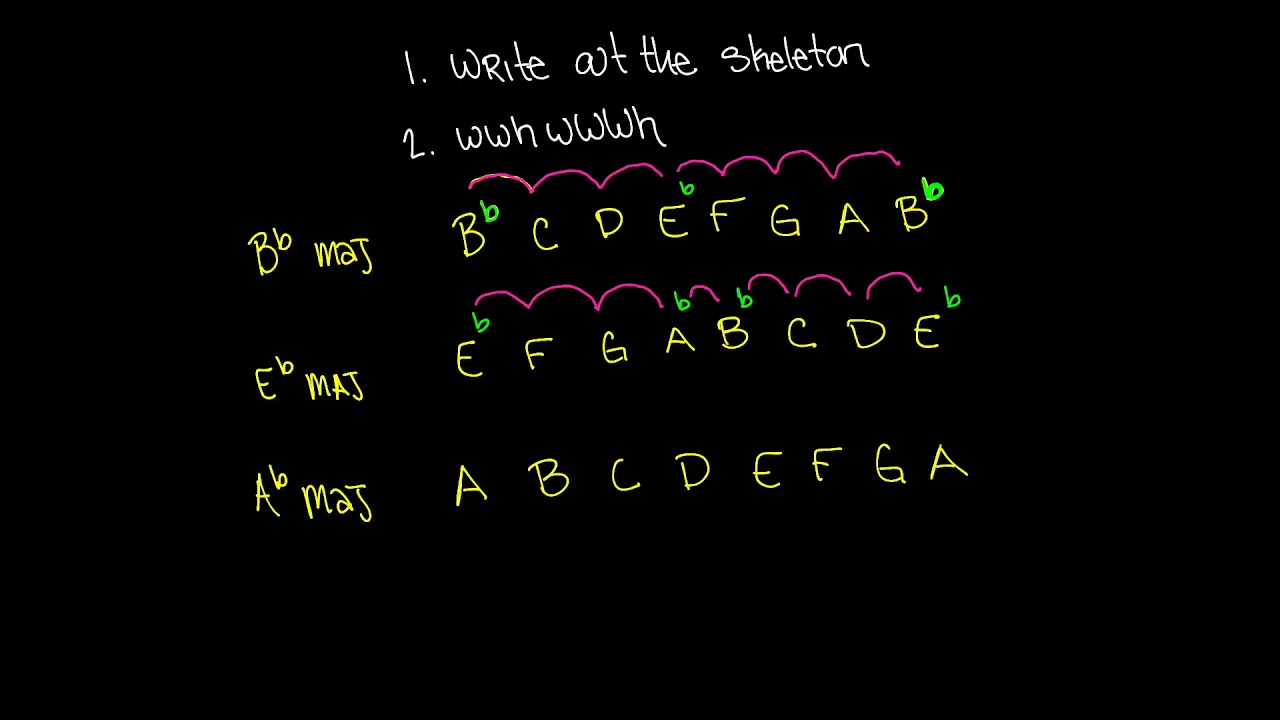 1. WRite out the skeleton
2. wwhwwwh
Bb maj Bb C D Eb F G A Bb
Eb MAJ Eb F G Ab Bb C D Eb
Ab maj A B C D E F G A